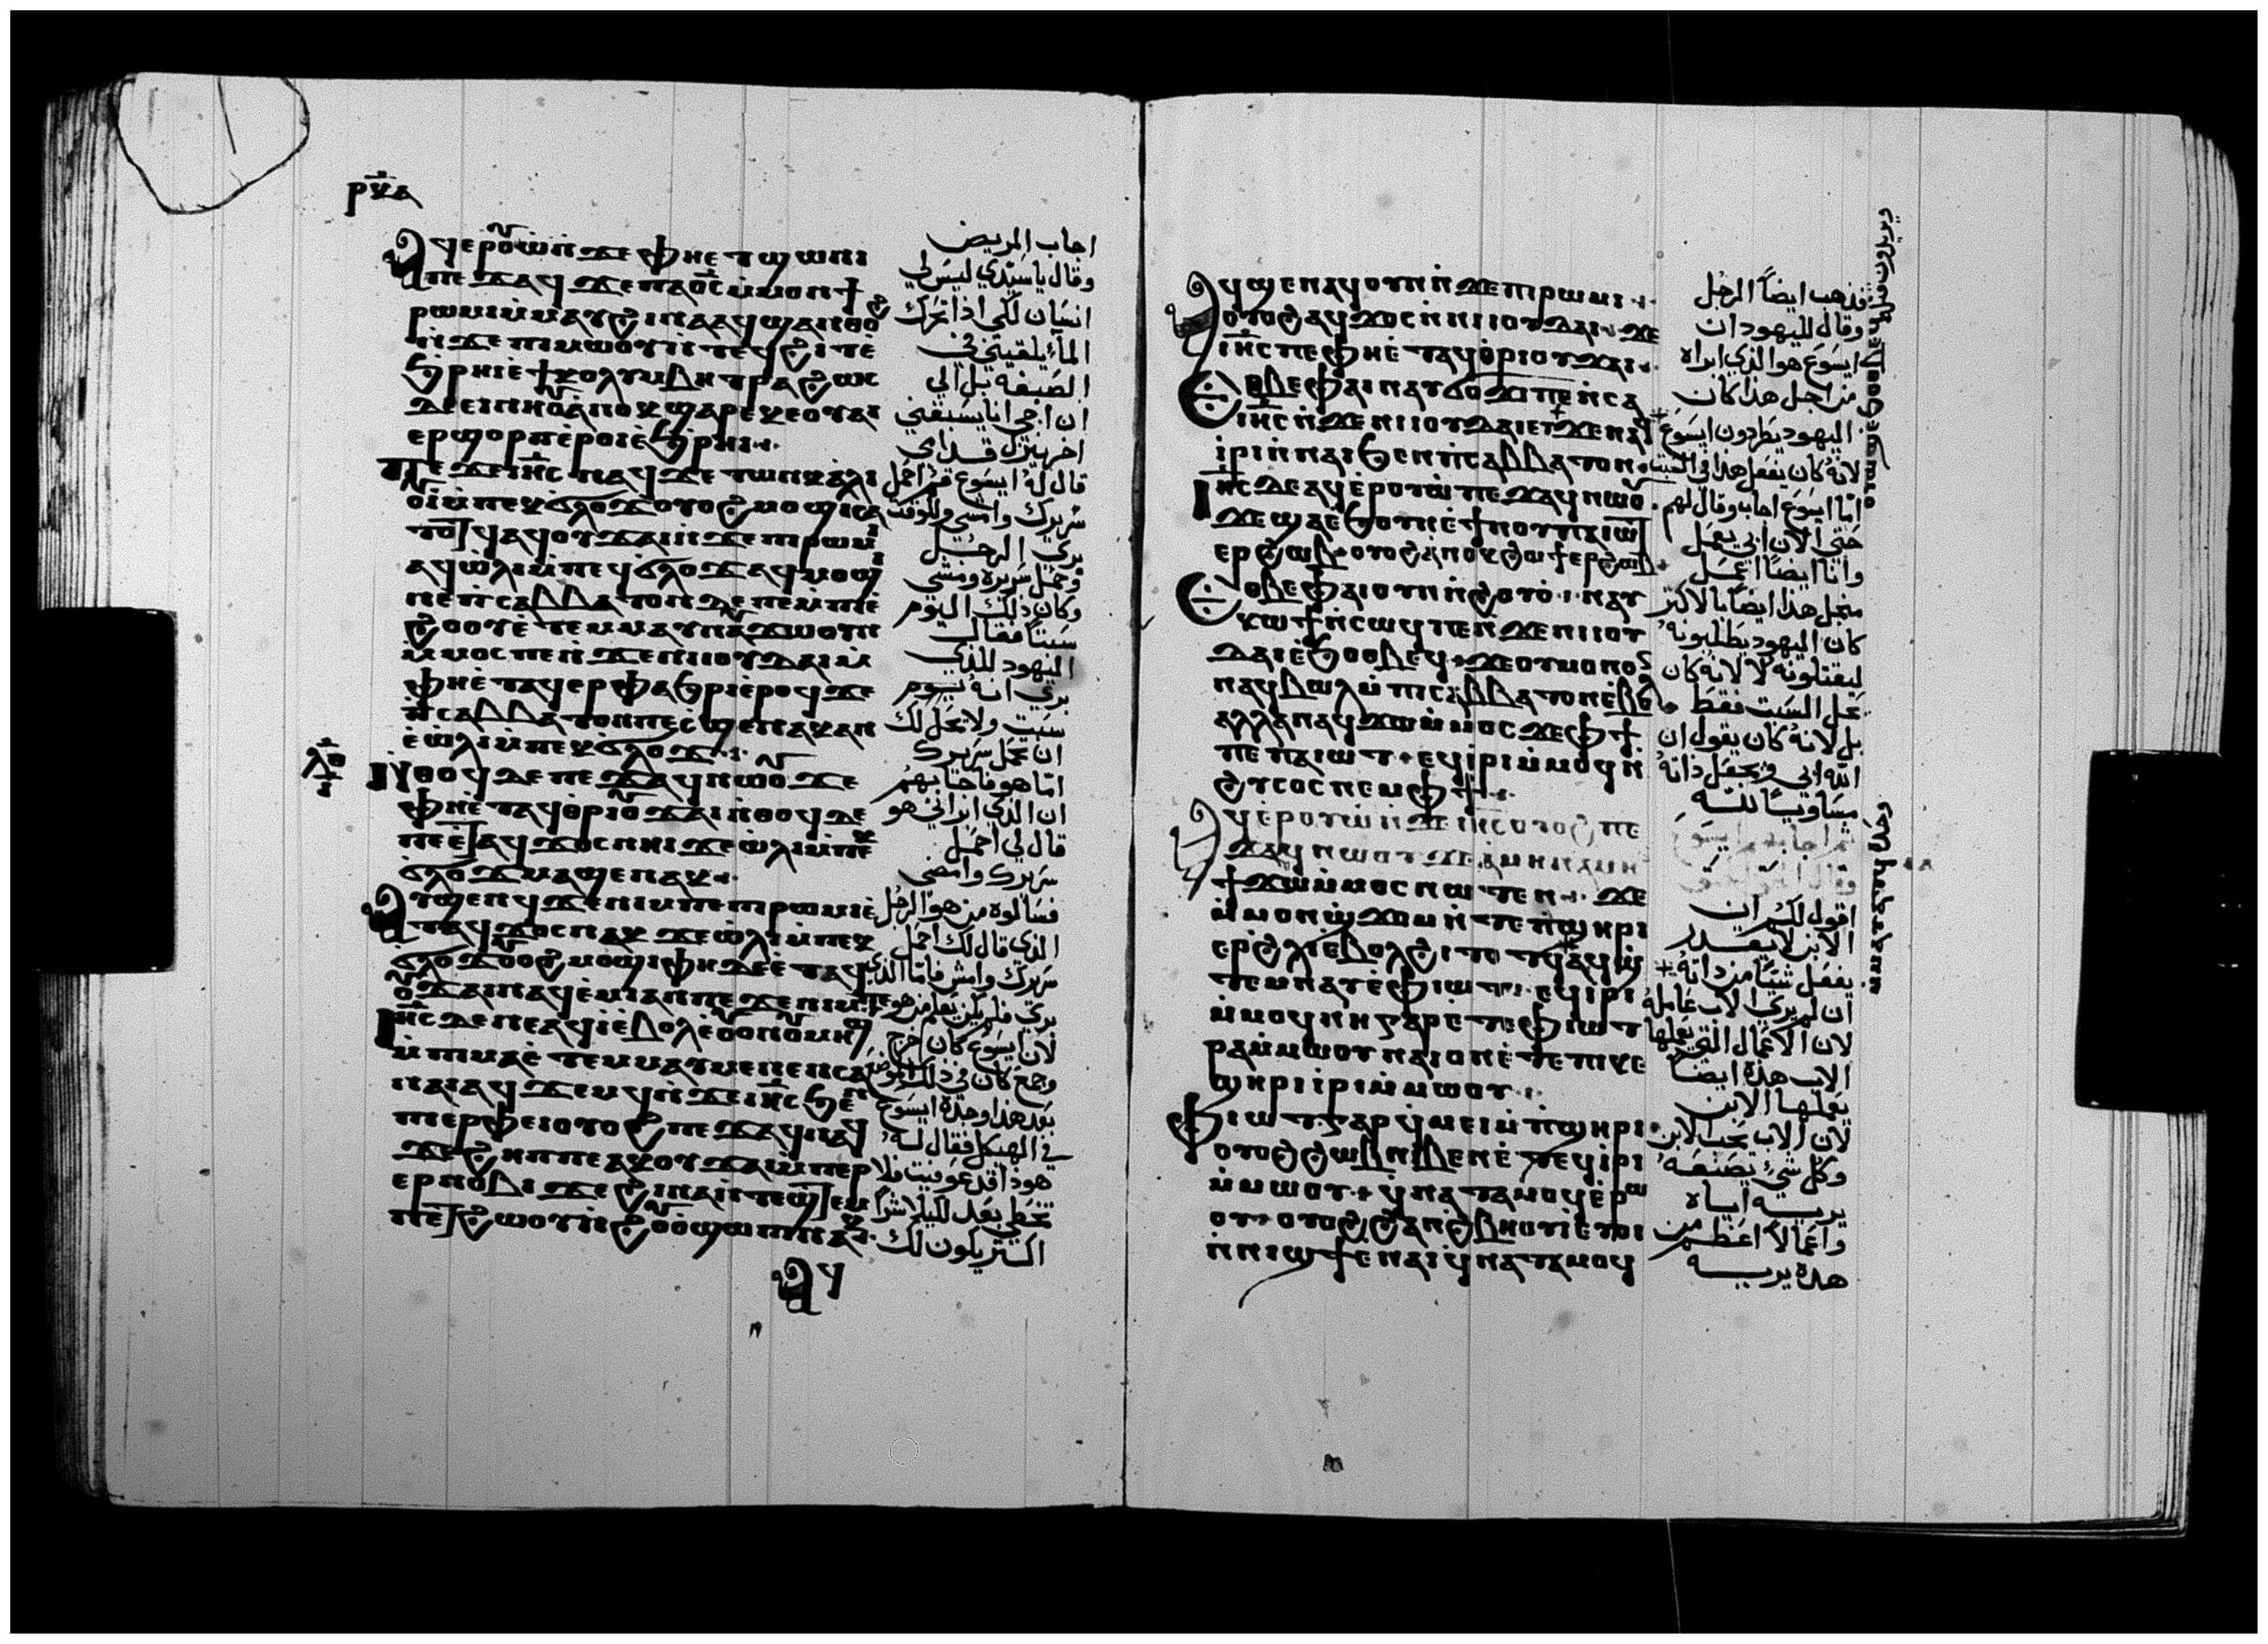 ⲣⲝⲁ
ⲁϥⲉⲣⲟⲩⲱ ⲛϫⲉ ⲫⲏⲉⲧϣⲱⲛⲓ
ⲡⲉϫⲁϥ ϫⲉ ⲡⲁⲟ̅ⲥ̅ ⲙ̇ⲙⲟⲛϯ
ⲣⲱⲙⲓ ⲙ̇ⲙⲁⲩ ϩⲓⲛⲁ ⲁϥϣⲁⲛⲑⲟϩ
ⲛ̇ϫⲉ ⲡⲓⲙⲱⲟⲩ ⲛ̇ⲧⲉϥϩⲓⲧ ⲉ̇
ϧⲣⲏⲓ ⲉ̇ϯⲕⲟⲗⲩⲙⲃⲏⲑⲣⲁ ϩⲱⲥ
ⲇⲉ ⲉⲓⲛⲏⲟⲩ ⲁ̇ⲛⲟⲕ ϣⲁⲣⲉ ⲕⲉⲟⲩⲁⲓ
ⲉⲣϣⲟⲣⲡ ⲉ̇ⲣⲟⲓ ⲉ̇ϧⲣⲏⲓ
ⲡⲉϫⲉ ⲓⲏ̅ⲥ̅ ⲛⲁϥ ϫⲉ ⲧⲱⲛⲕ ⲁ̇ⲗⲓ
ⲟⲩⲓ̇ ⲙ̇ⲡⲉⲕϭⲗⲟϫ ⲟⲩⲟϩ ⲙⲟϣⲓ ⲥⲁ
ⲧⲟⲧϥ ⲁϥⲟⲩϫⲁⲓ ⲛ̇ϫⲉ ⲡⲓⲣⲱⲙⲓ
ⲁϥⲱ̇ⲗⲓ ⲙ̇ⲡⲉϥϭⲗⲟϫ ⲁϥⲙⲟϣⲓ
ⲛⲉ ⲡⲥⲁⲃⲃⲁⲧⲟⲛ ⲇⲉ ⲡⲉ ⲙ̇ⲡⲓⲉ̇
ϩⲟⲟⲩ ⲉ̇ⲧⲉⲙⲙⲁⲩ ⲛⲁⲩϫⲱ ⲟⲩⲛ
ⲙ̇ⲙⲟⲥ ⲡⲉ ⲛ̇ϫⲉ ⲛⲓⲓⲟⲩⲇⲁⲓ ⲙ̇
ⲫⲏⲉ̇ⲧⲁϥⲉⲣⲫⲁϧⲣⲓ ⲉ̇ⲣⲟϥ ϫⲉ
ⲡ̇ⲥⲁⲃⲃⲁⲧⲟⲛ ⲡⲉ ⲥϣⲉ ⲛⲁⲕ ⲁⲛ
ⲉ̇ⲱ̇ⲗⲓ ⲙ̇ⲡⲉⲕϭⲗⲟϫ
ⲛ̇ⲑⲟϥ ⲇⲉ ⲡⲉϫⲁϥ ⲛⲱⲟⲩ ϫⲉ
ⲫⲏⲉ̇ⲧⲁϥⲑⲣⲓⲟⲩϫⲁⲓ ⲛ̇ⲑⲟϥ ⲡⲉ
ⲡⲉⲉ̇ⲧⲁϥϫⲟⲥ ⲛⲏⲓ ϫⲉ ⲱ̇ⲗⲓ ⲙ̇ⲡⲉⲕ
ϭⲗⲟϫ ⲙⲁϣⲉ ⲛⲁⲕ
ⲁⲩϣⲉⲛϥ ϫⲉ ⲛⲓⲙ ⲡⲉ ⲡⲓⲣⲱⲙⲓ ⲉ̇
ⲧⲁϥϫⲟⲥ ⲛⲁⲕ ϫⲉ ⲱ̇ⲗⲓ ⲙ̇ⲡⲉⲕ
ϭⲗⲟϫ ⲟⲩⲟϩ ⲙⲟϣⲓ ⲫⲏ ⲇⲉ ⲉ̇ⲧⲁϥ
ⲟⲩϫⲁⲓ ⲛⲁϥⲉ̇ⲙⲓ ⲁⲛ ⲡⲉ ϫⲉ ⲛⲓⲙ ⲡⲉ
ⲓⲏ̅ⲥ̅ ⲇⲉ ⲛⲉ ⲁϥⲓ̇ ⲉ̇ⲃⲟⲗ ⲉ̇ⲟⲩⲟⲛ ⲟⲩⲙⲏϣ
ⲙ̇ⲡⲓⲙⲁ ⲉ̇ⲧⲉⲙⲙⲁⲩ ⲙⲉⲛⲉⲛⲥⲁ
ⲛⲁⲓ ⲁϥϫⲉⲙϥ ⲛ̇ϫⲉ ⲓⲏ̅ⲥ̅ ϧⲉⲛ
ⲡⲓⲉⲣⲫⲉⲓ ⲟⲩⲟϩ ⲡⲉϫⲁϥ ⲛⲁϥ
ϫⲉ ϩⲏⲡⲡⲉ ⲁⲕⲟⲩϫⲁⲓ ⲙ̇ⲡⲉⲣ
ⲉⲣⲛⲟⲃⲓ ϫⲉ ϩⲓⲛⲁ ⲛ̇ⲧⲉϣⲧⲉⲙ
ⲡⲉⲧϩⲱⲟⲩ ⲛ̇ϩⲟⲩⲟ̇ ϣⲱⲡⲓ ⲛⲁⲕ
ⲁϥ
اجاب المريض
وقال ياسيدي ليس لي
انسان لكي اذا تحرك
الما يلقيني في
الصبغه بل الي
ان اجي انا يسبقني
اخر ينزل قدامي
قال له ايسوع قم احمل
سريرك وامشي وللوقت
بري الرجل
وحمل سريره ومشي
وكان ذلك اليوم
سبتا فقال
اليهود للذي
بري انه يوم
سبت ولا يحل لك
ان تحمل سريرك
اما هو فاجابهم
ان الذي ابراني هو
قال لي احمل
سريرك وامضي
فسالوه من هو الرجل
الذي قال لك احمل
سريرك وامش فاما الذي
بري فلم يكن يعلم من هو
لان ايسوع كان خرج
وجمع كان في ذلك الموضع
بعد هذا وجده ايسوع
في الهيكل فقال له
هوذا قد عوفيت فلا
تخطي بعد لكيلا شرا
اكتر يكون لك
ⲁϥϣⲉⲛⲁϥ ⲟⲩⲛ ⲛ̇ϫⲉ ⲡⲓⲣⲱⲙⲓ
ⲟⲩⲟϩ ⲁϥϫⲟⲥ ⲛ̇ⲛⲓⲓⲟⲩⲇⲁⲓ ϫⲉ
ⲓⲏ̅ⲥ̅ ⲡⲉ ⲫⲏⲉ̇ⲧⲁϥⲑ̇ⲣⲓⲟⲩϫⲁⲓ
ⲉⲑⲃⲉ ⲫⲁⲓ ⲛⲁⲩϭⲟϫⲓ ⲡⲉ ⲛ̇ⲥⲁ
ⲓⲏ̅ⲥ̅ ⲛ̇ϫⲉ ⲛⲓⲓⲟⲩⲇⲁⲓ ϫⲉ ⲛⲁϥ
ⲓ̇ⲣⲓ ⲛ̇ⲛⲁⲓ ϧⲉⲛ ⲡ̇ⲥⲁⲃⲃⲁⲧⲟⲛ
ⲓⲏ̅ⲥ̅ ⲇⲉ ⲁϥⲉ̇ⲣⲟⲩⲱ̇ ⲡⲉϫⲁϥ ⲛⲱⲟⲩ
ϫⲉ ϣⲁⲉ̇ϧⲟⲩⲛ ⲉ̇ϯⲛⲟⲩ ⲡⲁⲓⲱⲧ
ⲉⲣϩⲱⲃ ⲟⲩⲟϩ ⲁ̇ⲛⲟⲕ ϩⲱ ϯⲉⲣϩⲱⲃ
ⲉⲑⲃⲉ ⲫⲁⲓ ⲟⲩⲛ ⲛ̇ϩⲟⲩⲟ̇ ⲛⲁⲩ
ⲕⲱϯ ⲛ̇ⲥⲱϥ ⲡⲉ ⲛ̇ϫⲉ ⲛⲓⲓⲟⲩ
ⲇⲁⲓ ⲉ̇ϧⲟⲑⲃⲉϥ ϫⲉ ⲟⲩⲙⲟⲛⲟⲛ
ⲛⲁϥⲃⲱⲗ ⲙ̇ⲡⲓⲥⲁⲃⲃⲁⲧⲟⲛ ⲉ̇ⲃⲟⲗ
ⲁⲗⲗⲁ ⲛⲁϥϫⲱ ⲙ̇ⲙⲟⲥ ϫⲉ ⲫϯ
ⲡⲉ ⲡⲁⲓⲱⲧ ⲉϥⲓ̇ⲣⲓ ⲙ̇ⲙⲟϥ ⲛ̇
ϩⲩⲥⲟⲥ ⲛⲉⲙ ⲫϯ
ⲁϥⲉ̇ⲣⲟⲩⲱ̇ ⲛ̇ϫⲉ ⲓⲏ̅ⲥ̅ ⲟⲩⲟϩ ⲡⲉ
ϫⲁϥ ⲛⲱⲟⲩ ϫⲉ ⲁ̇ⲙⲏⲛ ⲁ̇ⲙⲏⲛ
ϯϫⲱ ⲙ̇ⲙⲟⲥ ⲛⲱⲧⲉⲛ ϫⲉ
ⲙ̇ⲙⲟⲛ ϣ̇ϫⲟⲙ ⲛ̇ⲧⲉ ⲡ̇ϣⲏⲣⲓ
ⲉⲣϩ̇ⲗⲓ ⲉ̇ⲃⲟⲗ ϩⲓⲧⲟⲧϥ ⲁϥϣ̇
ⲧⲉⲙⲛⲁⲩ ⲉ̇ⲫⲓⲱⲧ ⲉϥⲓ̇ⲣⲓ
ⲙ̇ⲙⲟϥ ⲛⲏ ⲅⲁⲣ ⲉ̇ⲧⲉ ⲫⲓⲱⲧ
ⲣⲁ ⲙ̇ⲙⲱⲟⲩ ⲛⲁⲓ ⲟⲛ ⲉ̇ⲧⲉ ⲡⲓⲕⲉ
ϣⲏⲣⲓ ⲓ̇ⲣⲓ ⲙ̇ⲙⲱⲟⲩ
ⲫⲓⲱⲧ ⲅⲁⲣ ϥ̇ⲙⲉⲓ ⲙ̇ⲡ̇ϣⲏⲣⲓ
ⲟⲩⲟϩ ϩⲱⲃ ⲛⲓⲃⲉⲛ ⲉ̇ⲧⲉϥⲓ̇ⲣⲓ
ⲙ̇ⲙⲱⲟⲩ ϥ̇ⲛⲁⲧⲁⲙⲟϥ ⲉ̇ⲣⲱ
ⲟⲩ ⲟⲩⲟϩ ϩⲁⲛϩ̇ⲃⲏⲟⲩⲓ̇ ⲉⲩⲟⲓ
ⲛ̇ⲛⲓϣϯ ⲉ̇ⲛⲁⲓ ϥ̇ⲛⲁⲧⲁⲙⲟϥ
فذهب ايضاً الرجل
وقال لليهود ان
ايسوع هو الذي ابراه
من اجل هذا كان
اليهود يطردون ايسوع
لانه كان يفعل هذا في السبت
اما ايسوع اجاب وقال لهم
حتي الان ابي يعمل
وانا ايضاً اعمل
منجل هذا ايضاً بالاكتر
كان اليهود يطلبونه
ليقتلونه لا لانه كان
يحل السبت فقط
بل لانه كان يقول ان
الله ابي ويجعل ذاته
مساويا لله
اقول لكم ان
الابن لا يقدر
يفعل شيئا من ذاته
ان لم يري الاب عامله
لان الاعمال التي يعملها
الاب هذه ايضاً
يعملها الابن
لان الاب يحب الابن
وكل شي يصنعه
يريه اياه
واعمالا اعظم من
هذه يريه